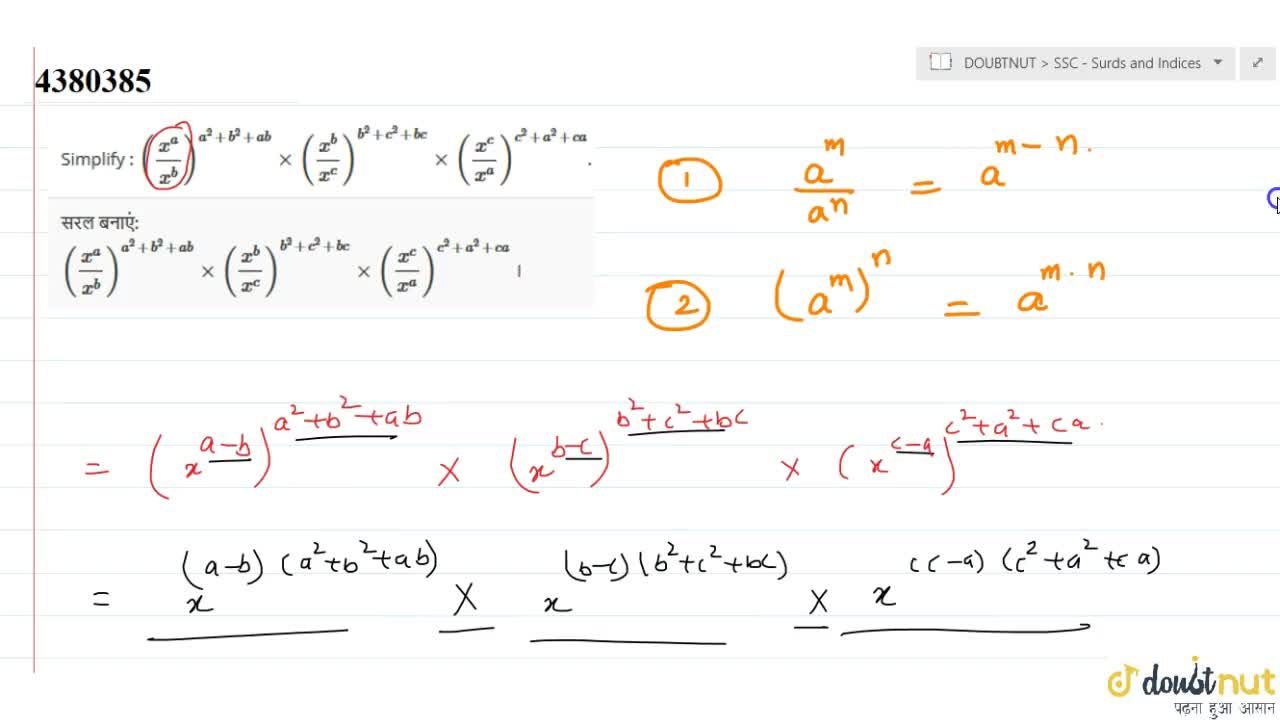 4380385
DOUBTNUT > SSC - Surds and Indices
Simplify : (x^a/x^b)^(a²+b²+ab) × (x^b/x^c)^(b²+c²+bc) × (x^c/x^a)^(c²+a²+ca) .
सरल बनाएं:
(x^a/x^b)^(a²+b²+ab) × (x^b/x^c)^(b²+c²+bc) × (x^c/x^a)^(c²+a²+ca) ।
① a^m/a^n = a^(m-n).
② (a^m)^n = a^(m·n)
= (x^(a-b))^(a²+b²+ab) × (x^(b-c))^(b²+c²+bc) × (x^(c-a))^(c²+a²+ca).
= x^((a-b)(a²+b²+ab)) × x^((b-c)(b²+c²+bc)) × x^((c-a)(c²+a²+ca))
doubtnut
पढ़ना हुआ आसान